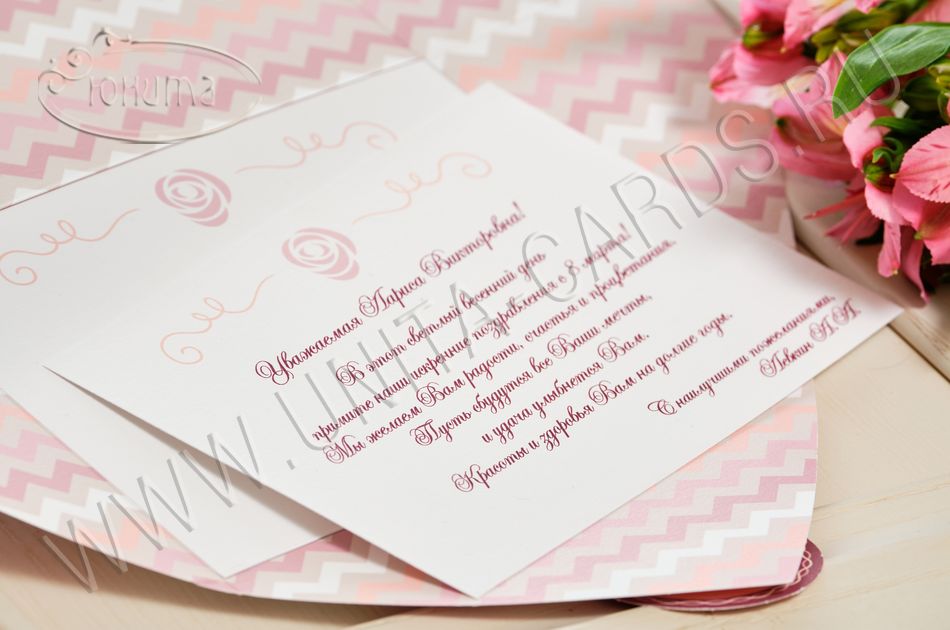 Юнита
Уважаемая Лариса Викторовна!
В этот светлый весенний день
примите наши искренние поздравления с 8 марта!
Мы желаем Вам радости, счастья и процветания.
Пусть сбудутся все Ваши мечты,
и удача улыбнется Вам.
Красоты и здоровья Вам на долгие годы.
С наилучшими пожеланиями,
Левкин А. А.
WWW.UNITA-CARDS.RU